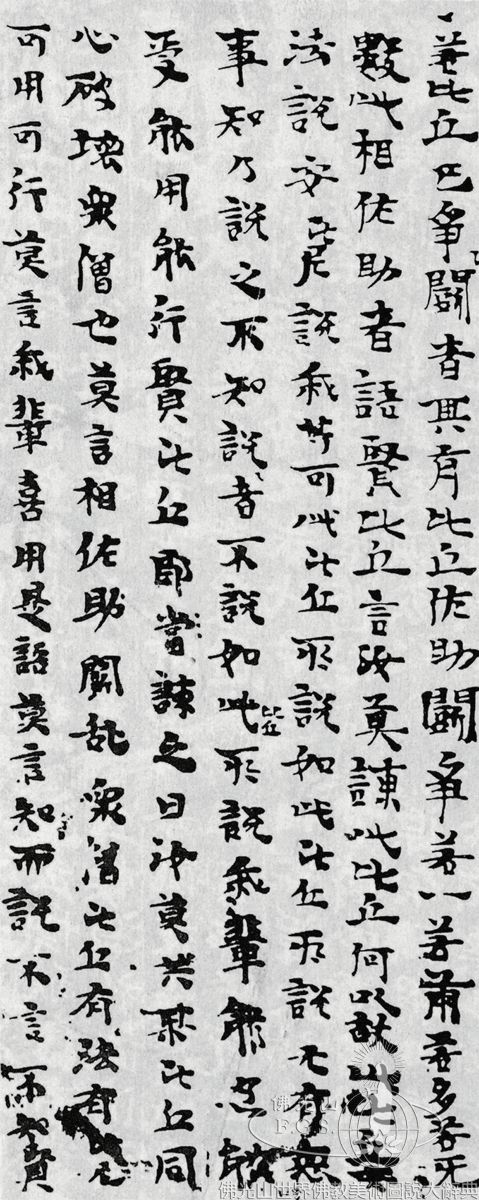 若比丘已爭鬪者其有比丘佐助鬪爭若一若兩若多若无
數此相佐助者語賢比丘言汝莫諫此比丘何以故此比丘
法說安尼說我等可此比丘所說如此比丘所說不有無
事知乃說之不知說者不說如此比丘所說我輩能忍能
受能用能行賢比丘即當諫之曰汝莫共某比丘同
心破壞眾僧也莫言相佐助鬪乱眾僧比丘有法有尼
可用可行莫言我輩喜用是語莫言知而說不言不知賢
佛光山
F.G.S.
佛光山世界佛教美術圖說大辭典